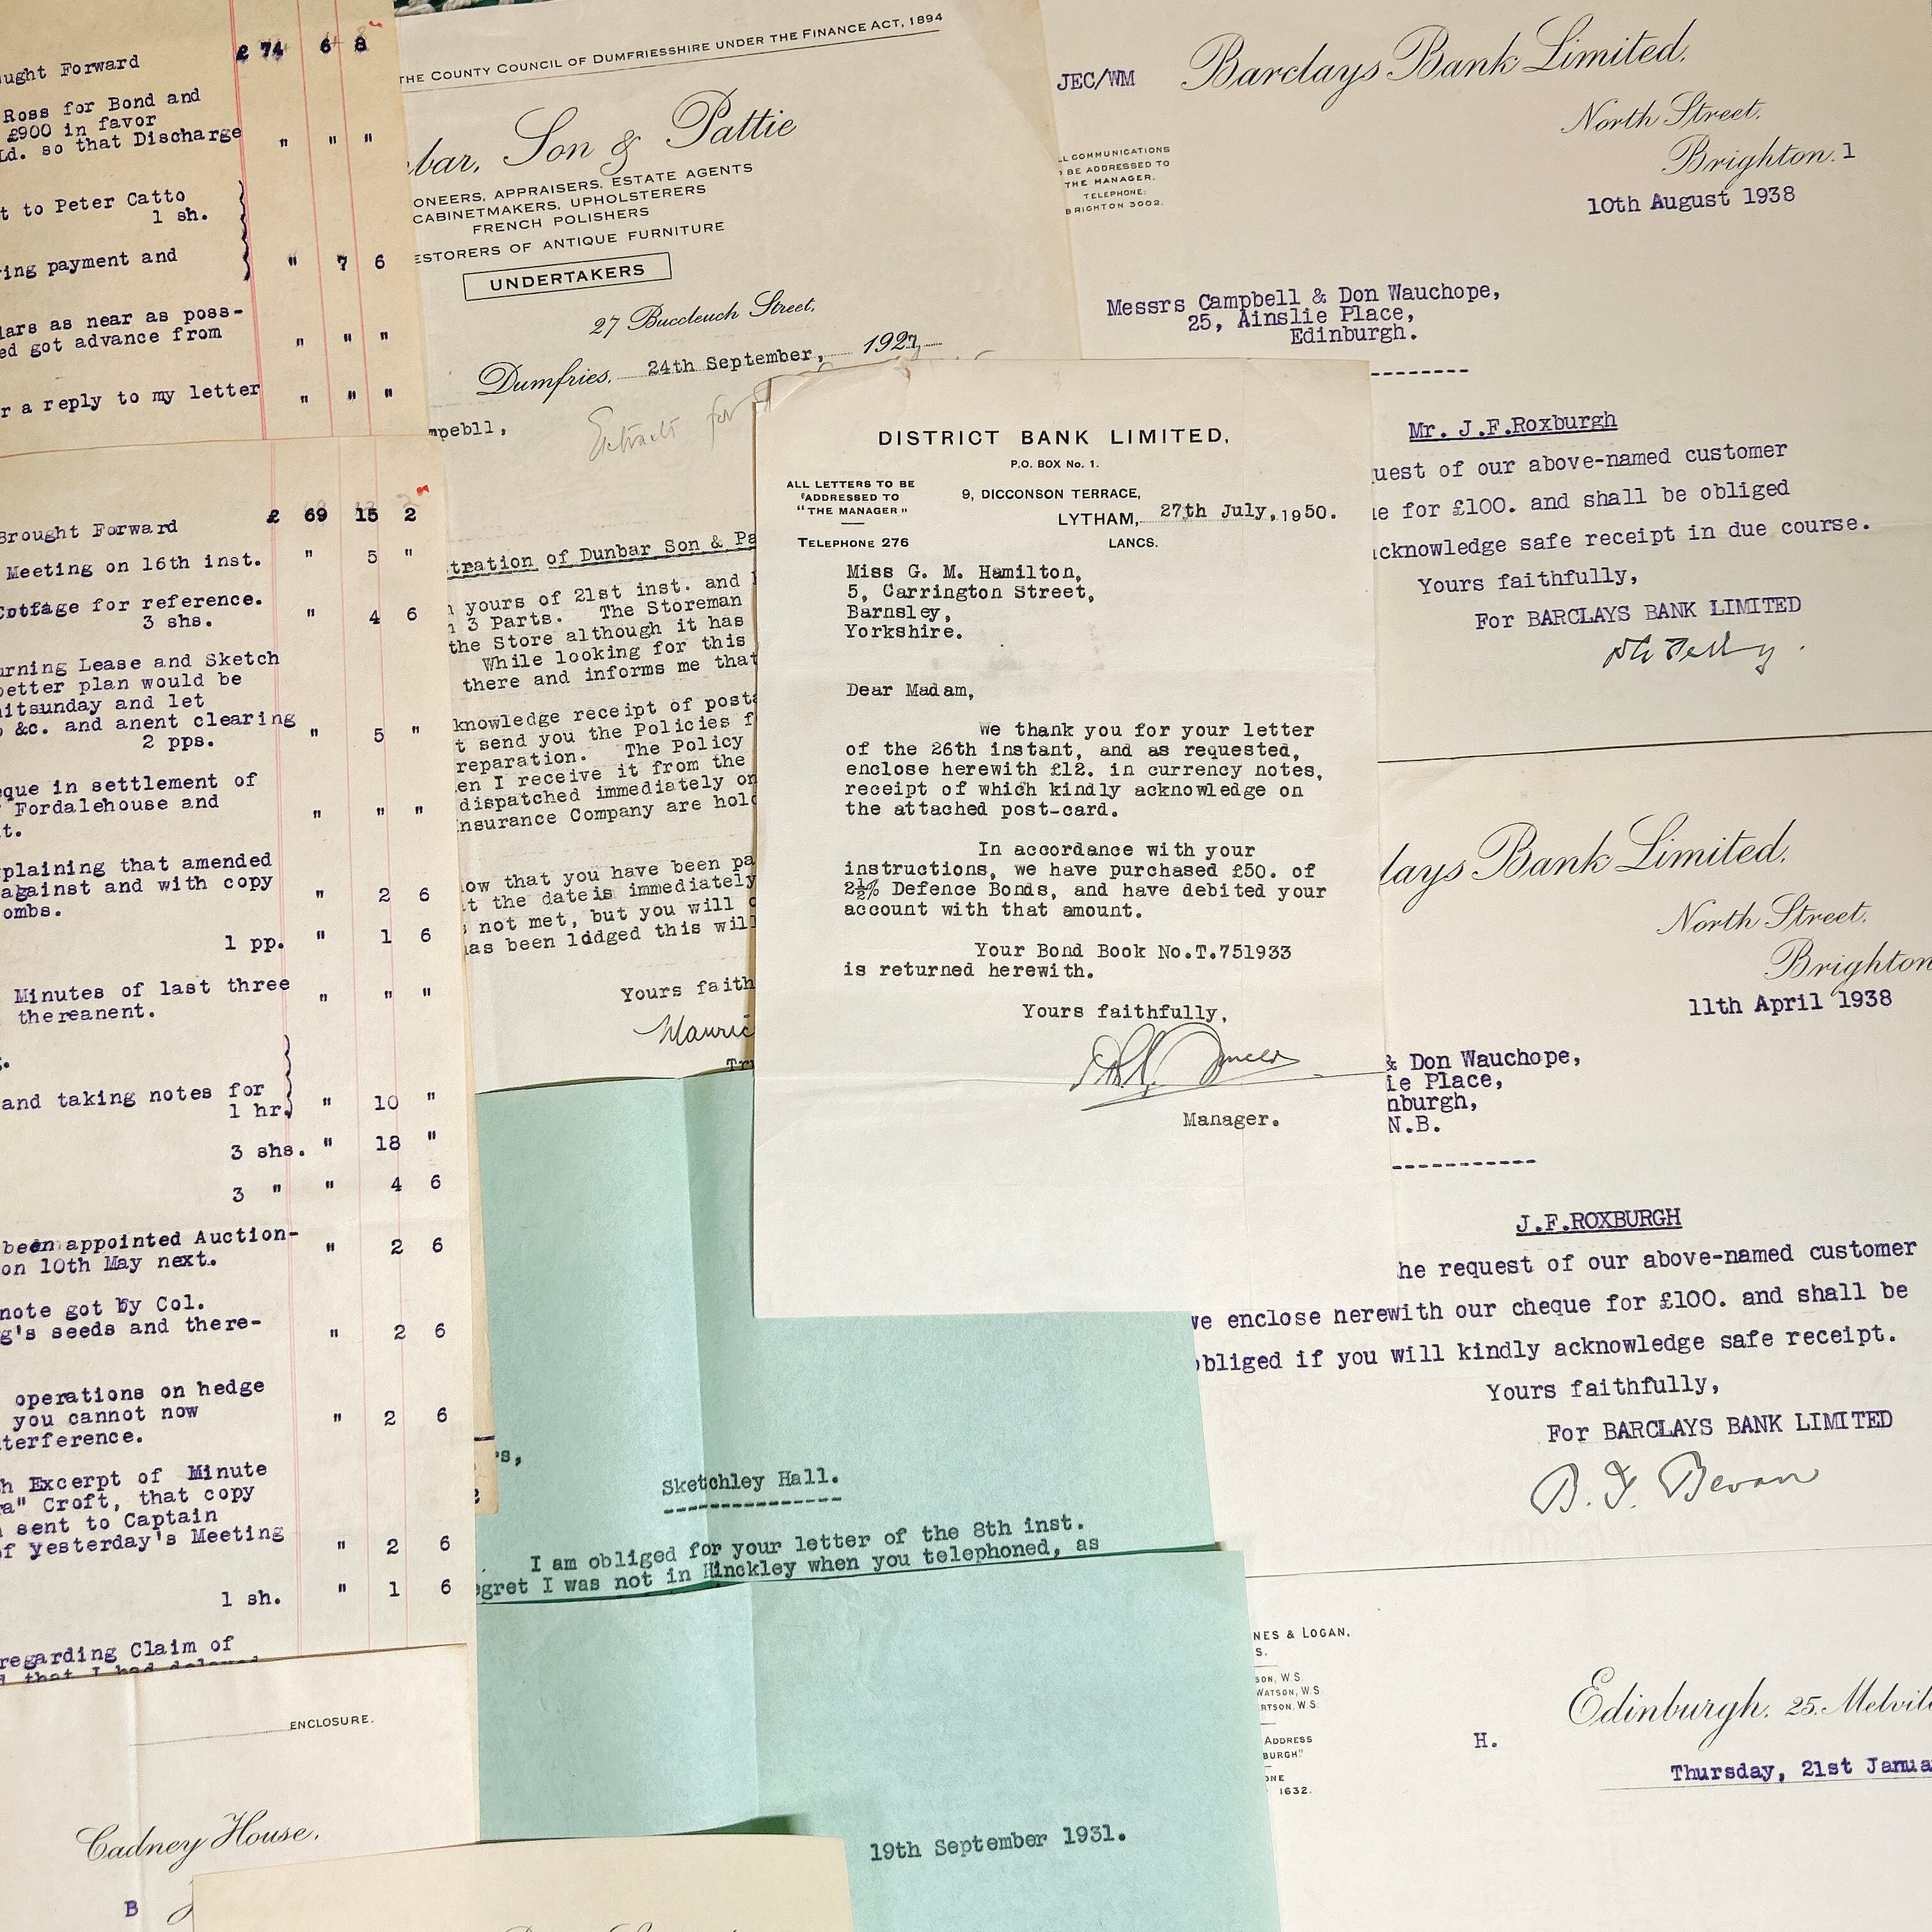 £ 74 6 8
ught Forward
Ross for Bond and
£900 in favor
Ld. so that Discharge " " "
t to Peter Catto
1 sh.
ing payment and " 7 6
lars as near as poss-
ed got advance from " " "
r a reply to my letter " " "
Brought Forward £ 69 15 2
Meeting on 16th inst. " 5 "
Cottage for reference.
3 shs. " 4 6
urning Lease and Sketch
better plan would be
hitsunday and let
&c. and anent clearing
2 pps. " 5 "
eque in settlement of
Fordalehouse and " " "
t.
xplaining that amended
against and with copy " 2 6
ombs.
1 pp. " 1 6
Minutes of last three
thereanent. " " "
and taking notes for
1 hr. " 10 "
3 shs. " 18 "
3 " " 4 6
been appointed Auction-
on 10th May next. " 2 6
note got by Col.
g's seeds and there- " 2 6
operations on hedge
you cannot now " 2 6
terference.
h Excerpt of Minute
a" Croft, that copy
sent to Captain
of yesterday's Meeting " 2 6
1 sh. " 1 6
regarding Claim of
that I had delayed
ENCLOSURE.
Cadney House,
B
THE COUNTY COUNCIL OF DUMFRIESSHIRE UNDER THE FINANCE ACT, 1894
bar, Son & Pattie
ONEERS, APPRAISERS, ESTATE AGENTS
CABINETMAKERS, UPHOLSTERERS
FRENCH POLISHERS
ESTORERS OF ANTIQUE FURNITURE
UNDERTAKERS
27 Buccleuch Street,
Dumfries, 24th September, 1927
mpebll,
Extracts for
tration of Dunbar Son & Pa
yours of 21st inst. and
3 Parts. The Storeman
the Store although it has
While looking for this
there and informs me that
knowledge receipt of posta
t send you the Policies f
reparation. The Policy
en I receive it from the
dispatched immediately on
nsurance Company are hold
ow that you have been pa
t the dateis immediately
not met, but you will
as been lodged this will
Yours faith
Mauric
Tr
DISTRICT BANK LIMITED,
P.O. BOX No. 1.
ALL LETTERS TO BE
ADDRESSED TO
"THE MANAGER"
TELEPHONE 276
9, DICCONSON TERRACE,
LYTHAM, 27th July, 1950.
LANCS.
Miss G. M. Hamilton,
5, Carrington Street,
Barnsley,
Yorkshire.
Dear Madam,
We thank you for your letter
of the 26th instant, and as requested,
enclose herewith £12. in currency notes,
receipt of which kindly acknowledge on
the attached post-card.
In accordance with your
instructions, we have purchased £50. of
2½% Defence Bonds, and have debited your
account with that amount.
Your Bond Book No.T.751933
is returned herewith.
Yours faithfully,
Manager.
rs,
Sketchley Hall.
I am obliged for your letter of the 8th inst.
egret I was not in Hinckley when you telephoned, as
19th September 1931.
JEC/WM
Barclays Bank Limited,
North Street,
Brighton. 1
L COMMUNICATIONS
BE ADDRESSED TO
THE MANAGER.
TELEPHONE:
BRIGHTON 3002.
10th August 1938
Messrs Campbell & Don Wauchope,
25, Ainslie Place,
Edinburgh.
Mr. J.F.Roxburgh
uest of our above-named customer
e for £100. and shall be obliged
cknowledge safe receipt in due course.
Yours faithfully,
For BARCLAYS BANK LIMITED
lays Bank Limited,
North Street,
Brighton
11th April 1938
& Don Wauchope,
ie Place,
nburgh,
N.B.
J.F.ROXBURGH
he request of our above-named customer
we enclose herewith our cheque for £100. and shall be
obliged if you will kindly acknowledge safe receipt.
Yours faithfully,
For BARCLAYS BANK LIMITED
B. F. Bevan
NES & LOGAN,
S.
SON, W.S.
WATSON, W.S.
RTSON, W.S.
ADDRESS
BURGH"
ONE
1632.
Edinburgh, 25, Melvil
H.
Thursday, 21st Janua